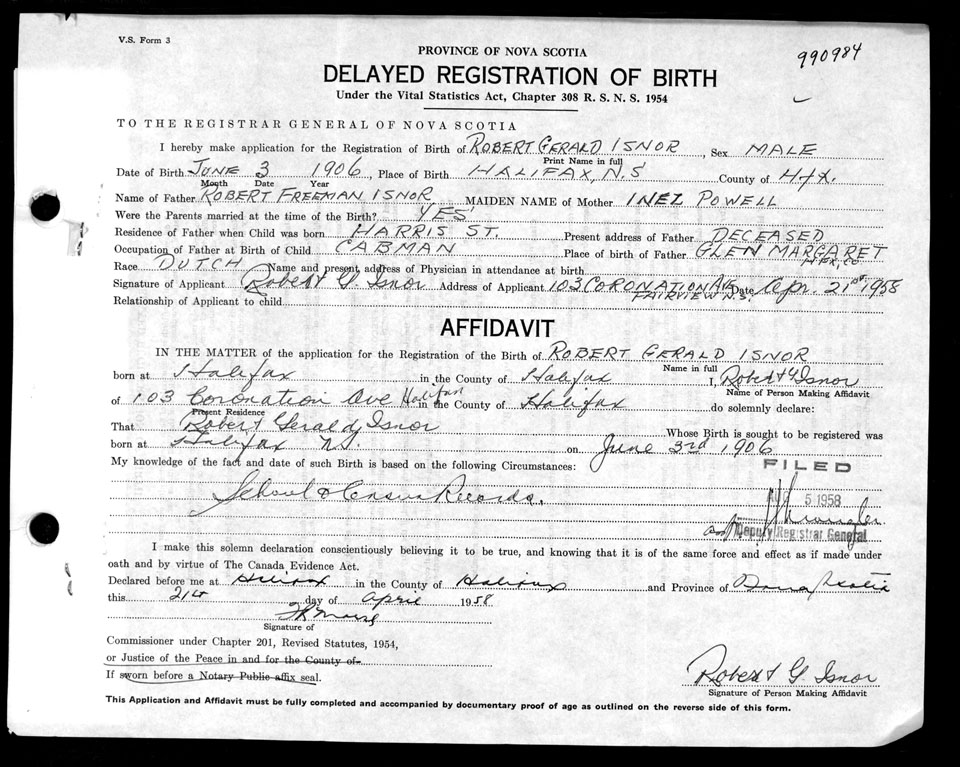 V.S. Form 3
PROVINCE OF NOVA SCOTIA
990984
DELAYED REGISTRATION OF BIRTH
Under the Vital Statistics Act, Chapter 308 R. S. N. S. 1954
TO THE REGISTRAR GENERAL OF NOVA SCOTIA
I hereby make application for the Registration of Birth of ROBERT GERALD ISNOR, Sex MALE
Print Name in full
Date of Birth JUNE 3 1906, Place of Birth HALIFAX, N.S County of HFX.
Month Date Year
Name of Father ROBERT FREEMAN ISNOR MAIDEN NAME of Mother INEZ POWELL
Were the Parents married at the time of the Birth? YES
Residence of Father when Child was born HARRIS ST. Present address of Father DECEASED
Occupation of Father at Birth of Child CABMAN Place of birth of Father GLEN MARGARET
HFX, CO
Race DUTCH Name and present address of Physician in attendance at birth
Signature of Applicant Robert G. Isnor Address of Applicant 103 CORONATION AVE Date Apr. 21st 1958
FAIRVIEW N.S.
Relationship of Applicant to child
AFFIDAVIT
IN THE MATTER of the application for the Registration of the Birth of ROBERT GERALD ISNOR
Name in full
born at Halifax in the County of Halifax I, Robert G Isnor
Name of Person Making Affidavit
of 103 Coronation Ave Halifax in the County of Halifax do solemnly declare:
Present Residence
That Robert Gerald Isnor Whose Birth is sought to be registered was
born at Halifax N.S. on June 3rd 1906
My knowledge of the fact and date of such Birth is based on the following Circumstances:
FILED
School & Census Records.
5 1958
Deputy Registrar General
I make this solemn declaration conscientiously believing it to be true, and knowing that it is of the same force and effect as if made under
oath and by virtue of The Canada Evidence Act.
Declared before me at Halifax in the County of Halifax and Province of Nova Scotia
this 21st day of April 1958
Signature of
Commissioner under Chapter 201, Revised Statutes, 1954,
or Justice of the Peace in and for the County of
If sworn before a Notary Public affix seal.
Robert G Isnor
Signature of Person Making Affidavit
This Application and Affidavit must be fully completed and accompanied by documentary proof of age as outlined on the reverse side of this form.